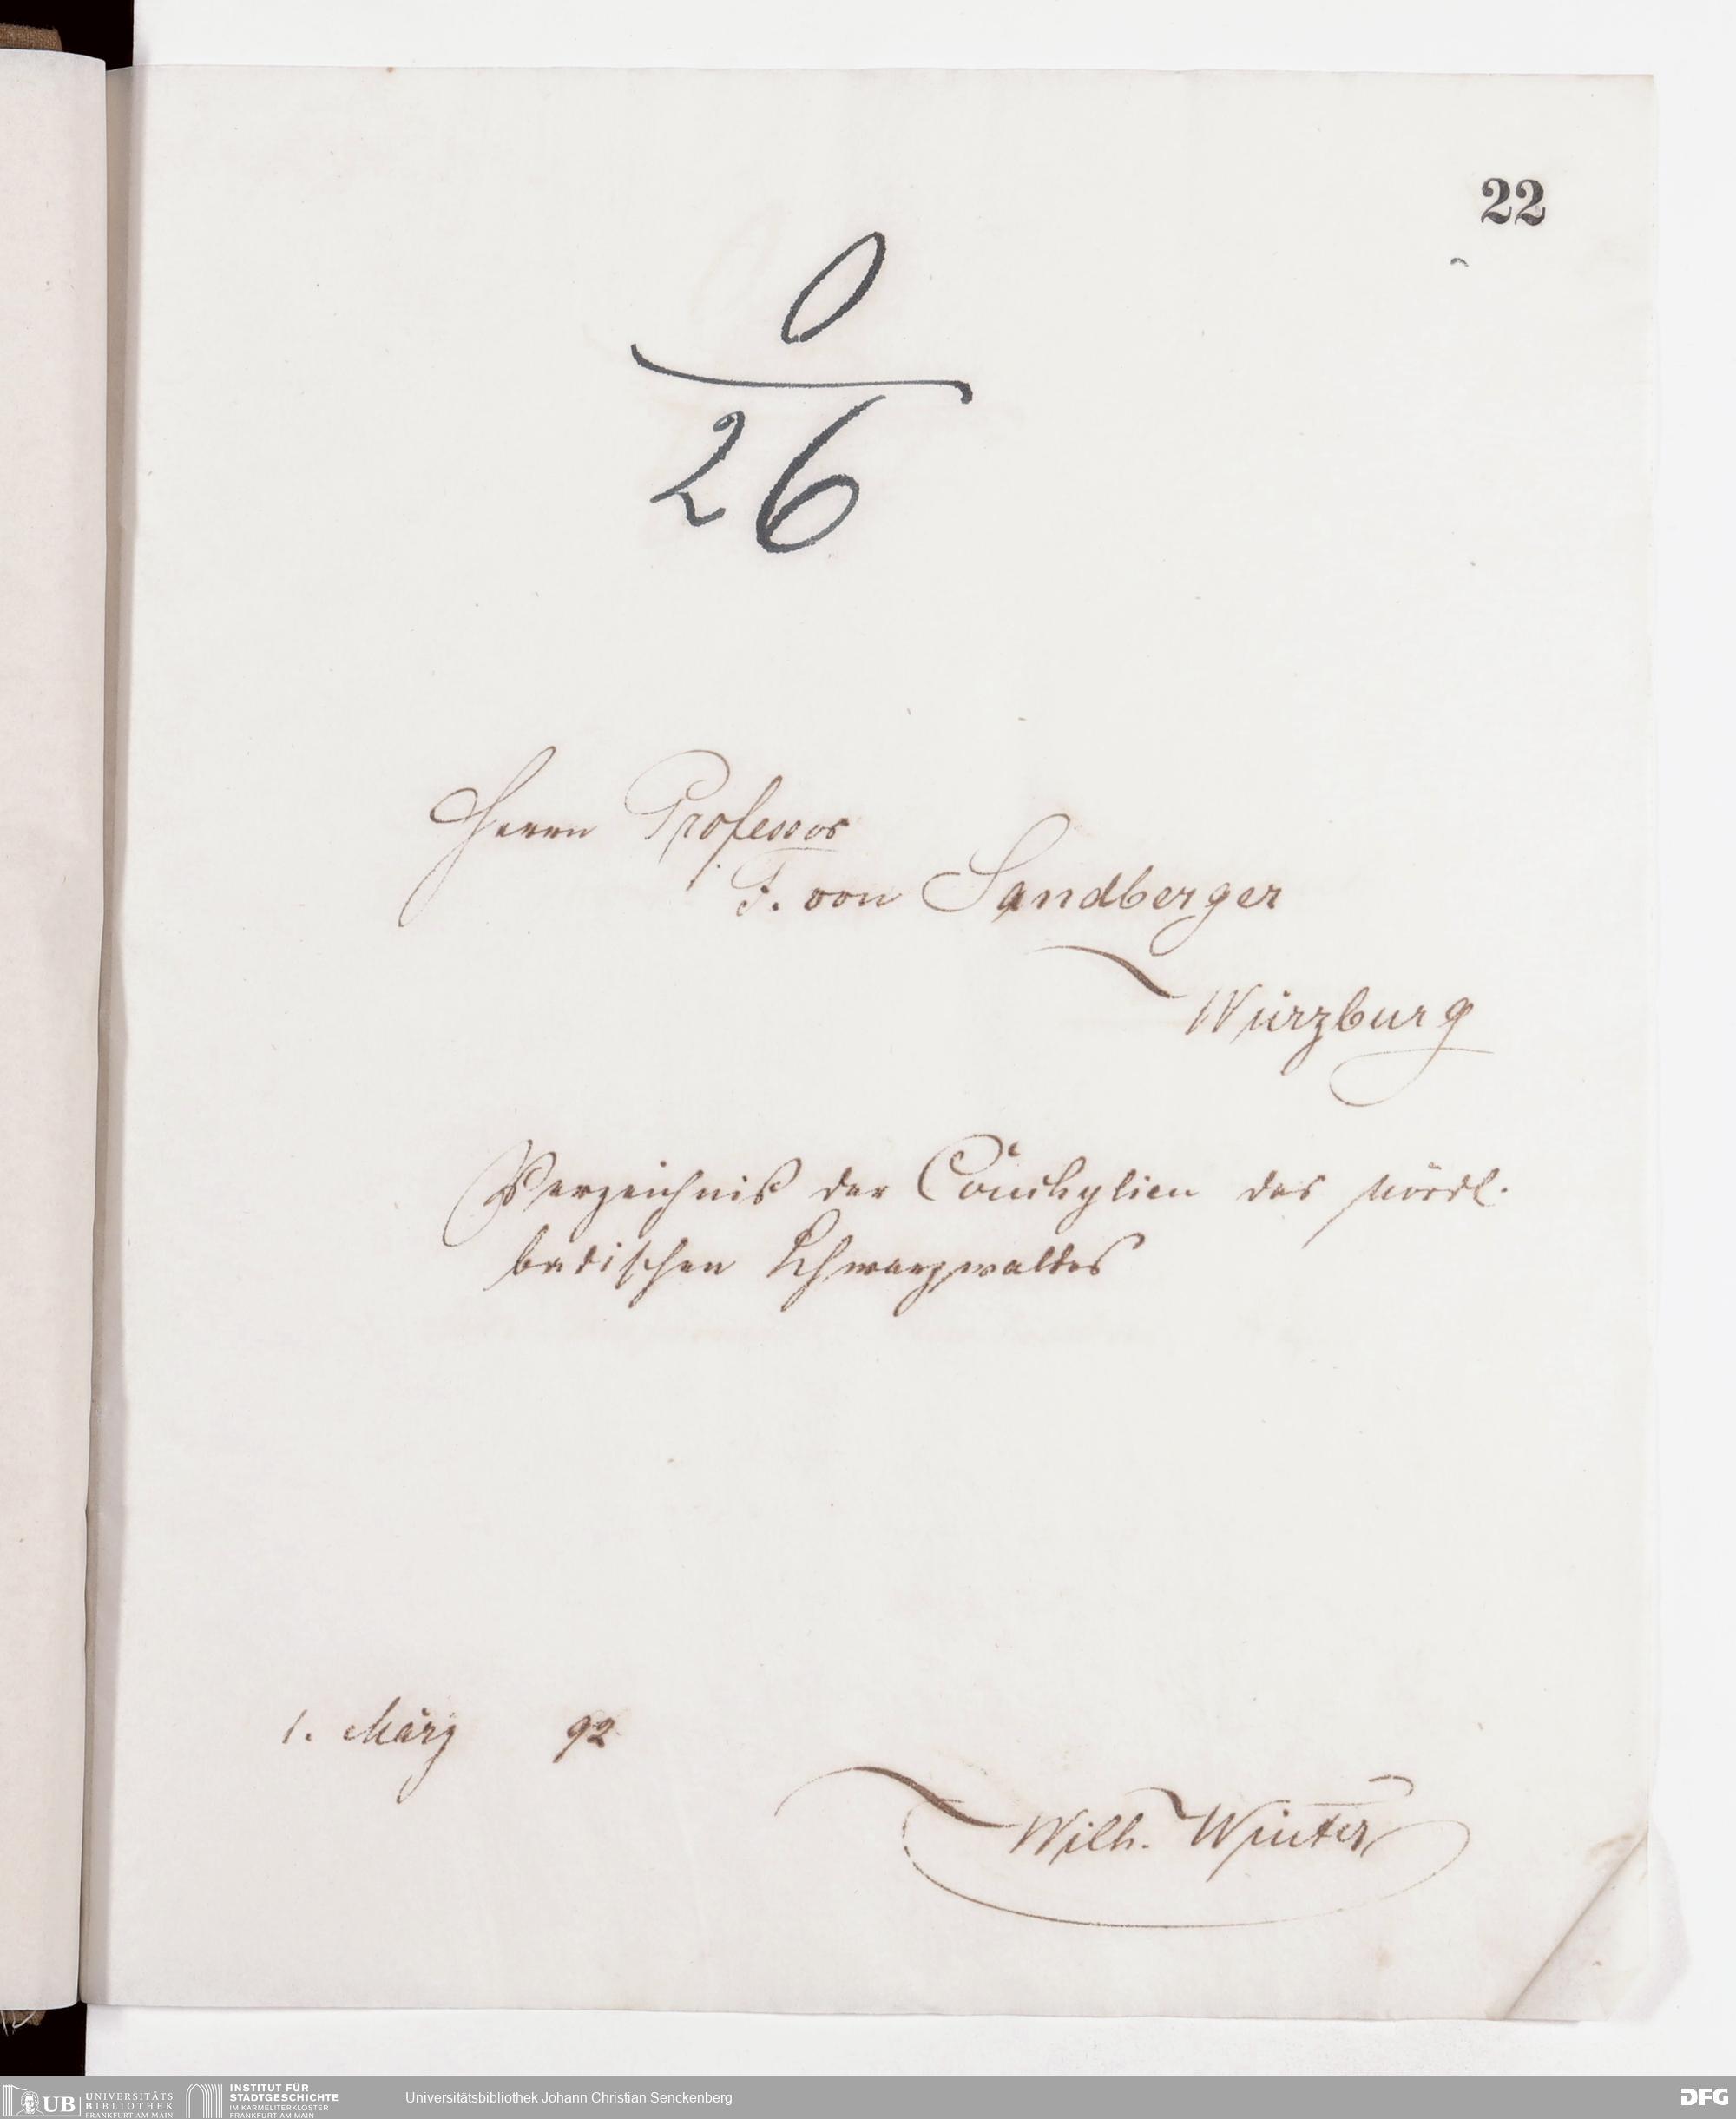 22
0
26
Herrn Professor
F. von Sandberger
Würzburg
Verzeichniß der Conchylien des nördl.
badischen Schwarzwaldes
1. März 92
Wilh. Winter
UB UNIVERSITÄTS
BIBLIOTHEK
FRANKFURT AM MAIN
INSTITUT FÜR
STADTGESCHICHTE
IM KARMELITERKLOSTER
FRANKFURT AM MAIN
Universitätsbibliothek Johann Christian Senckenberg
DFG